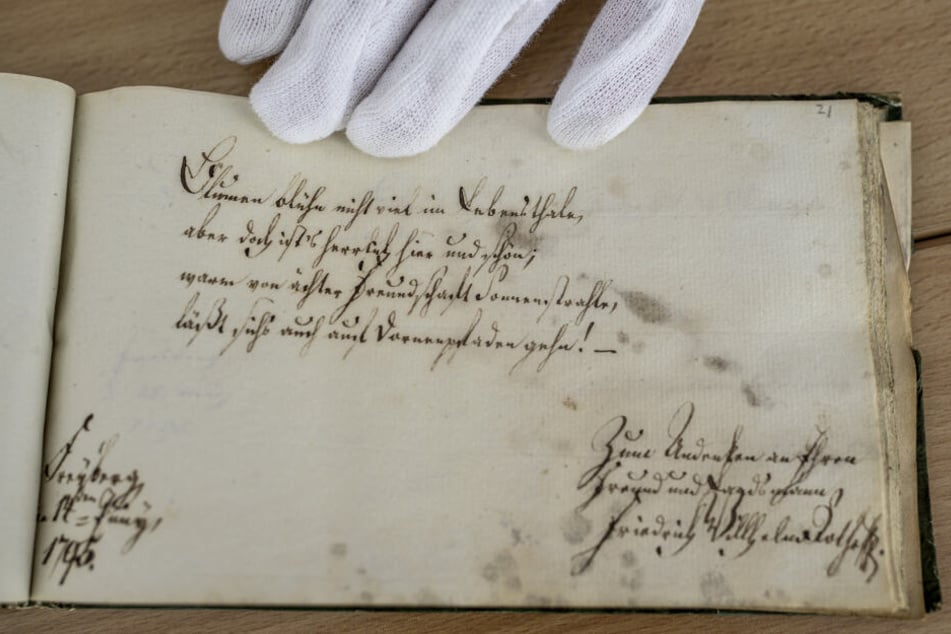 21
Blumen blühn nicht viel im Lebensthale,
aber doch ist's herrlich hier und schön,
warm von ächter Freundschaft Sonnenstrahle,
läßt sichs auch auf Dornenpfaden gehn! —
Freyberg,
den
14 Juny,
Zum Andenken an Ihren
Freund und Landsmann,
Friedrich Willhelm